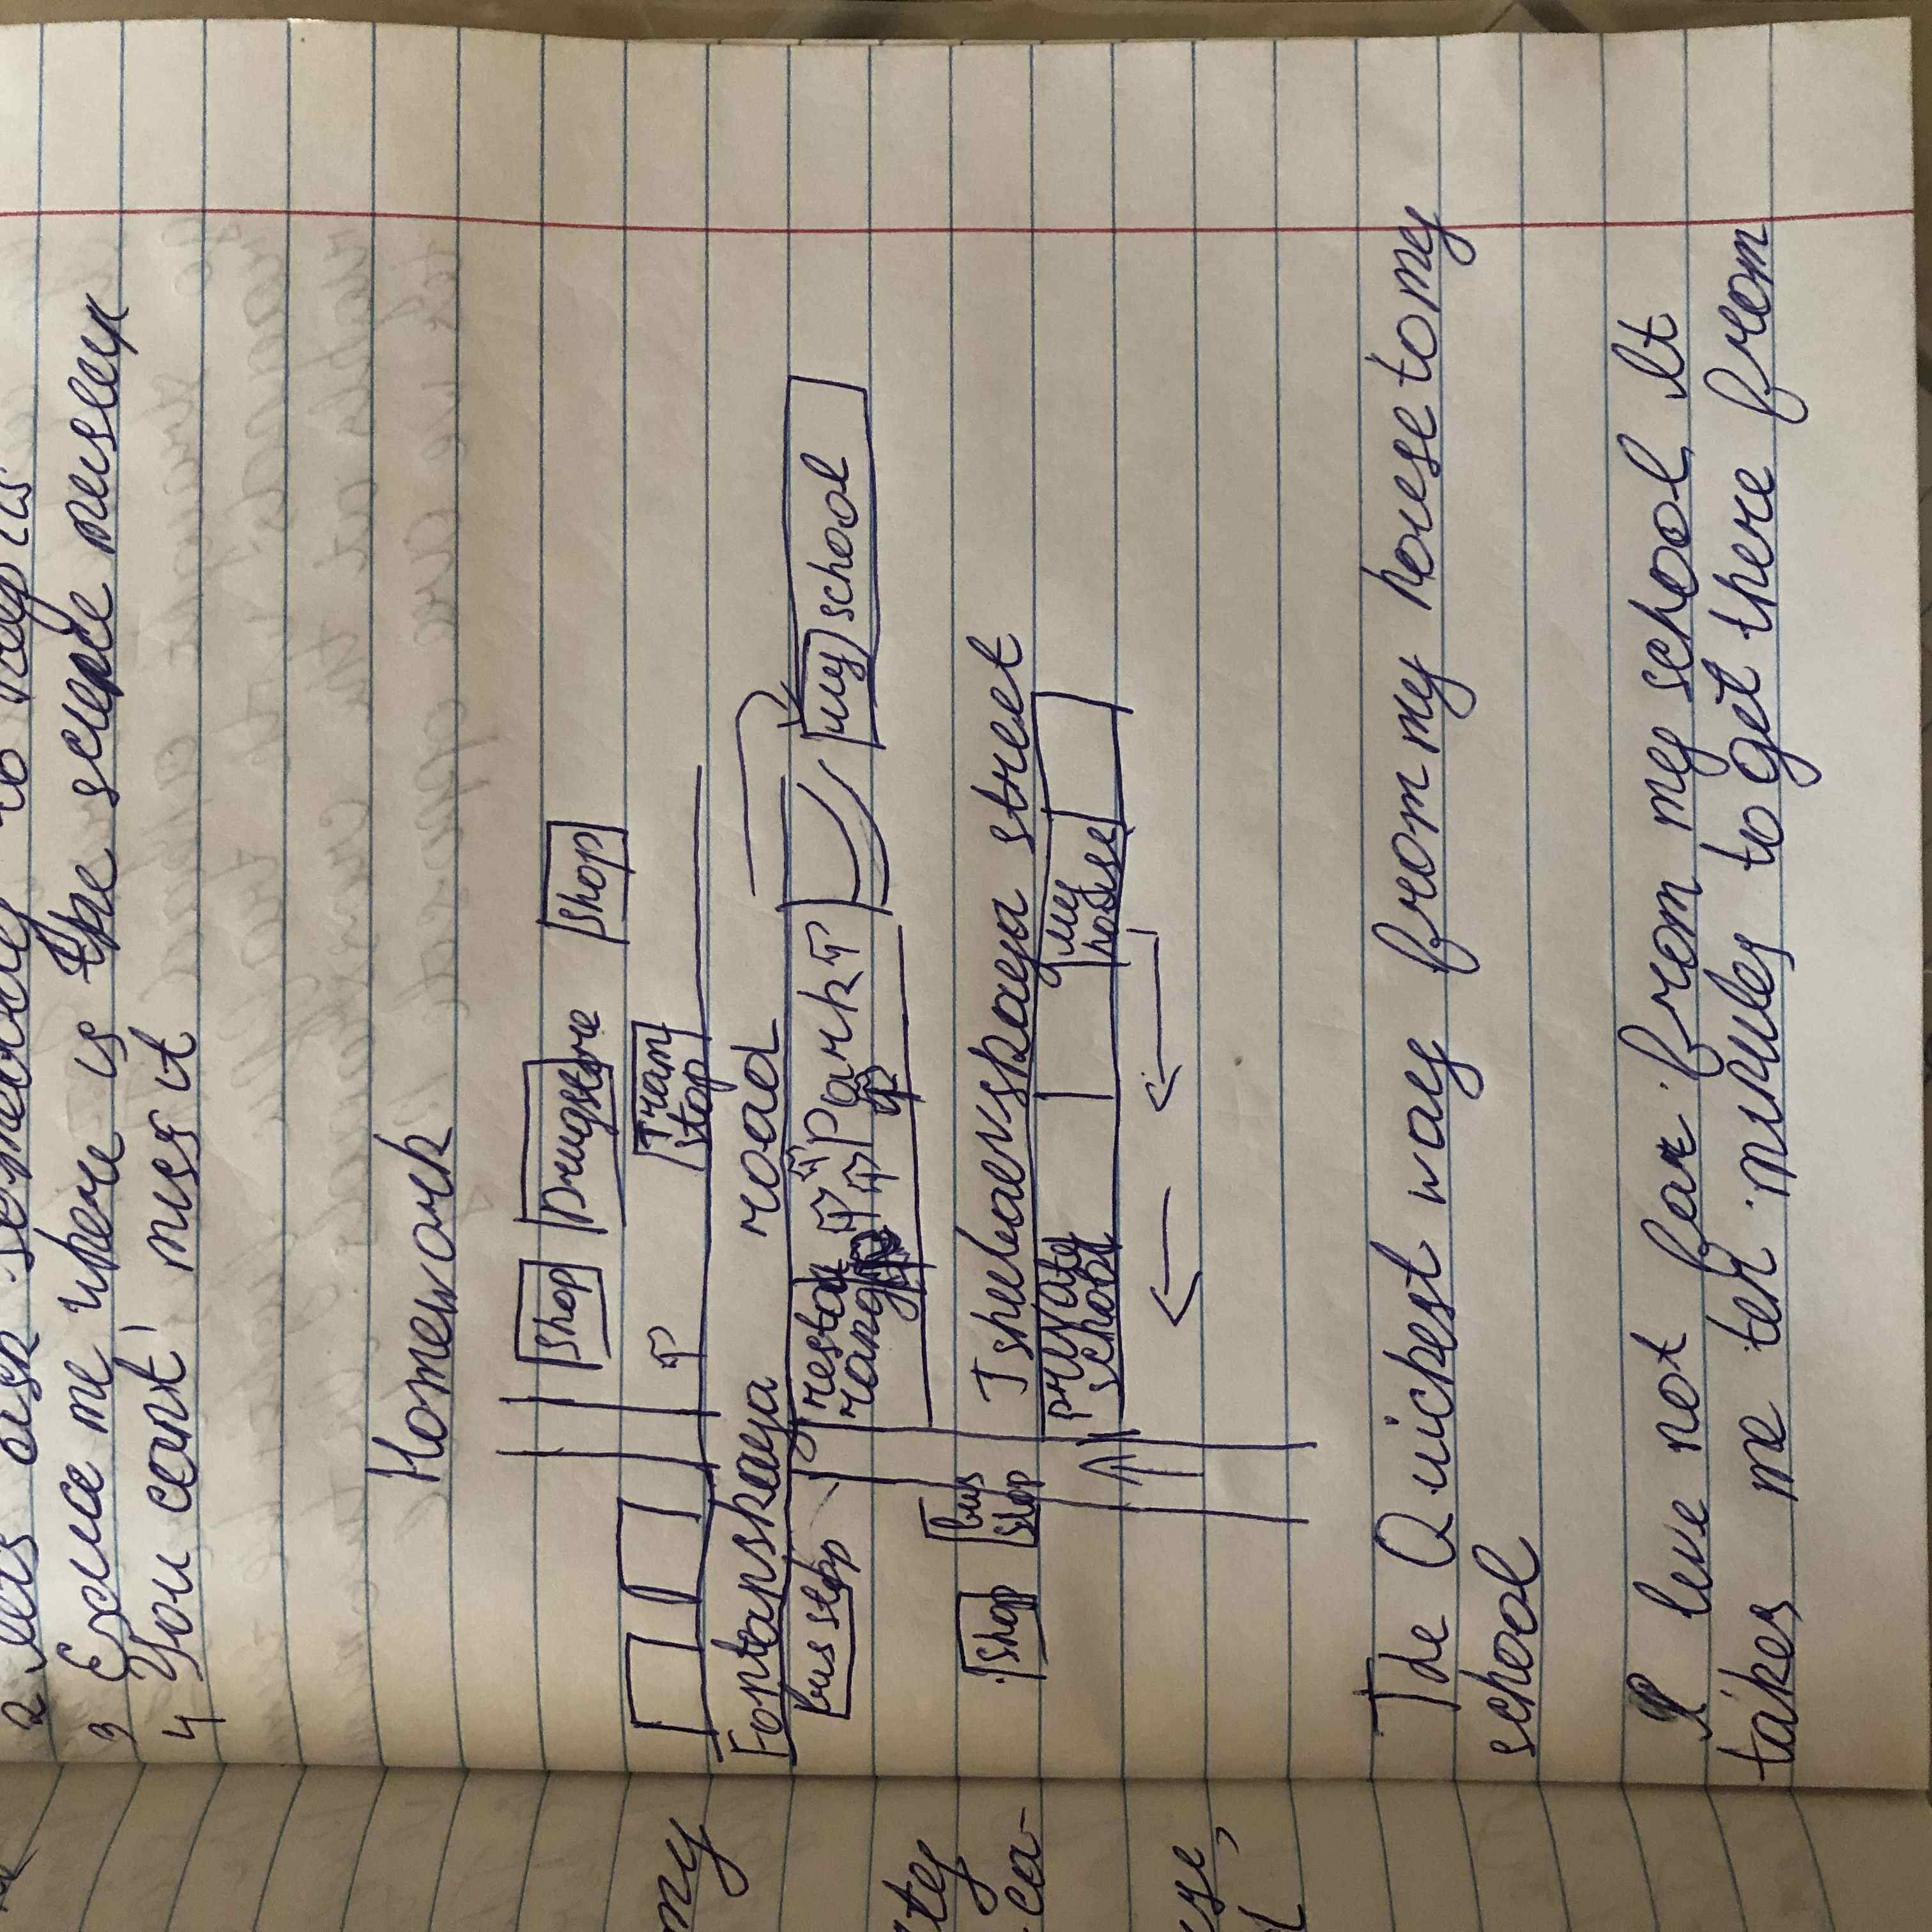 3 Excuce me where is the science museum
4 You cant' miss it
Homework
shop
Drugstore
shop
Tram
stop
Fontanskaya road
bus stop
restau
rang
Park
my school
shop
bus
stop
IsheLaevskaya street
private
school
my
house
The Quickest way from my house to my
school
I live not far from my school. It
takes me ten minutes to get there from
my